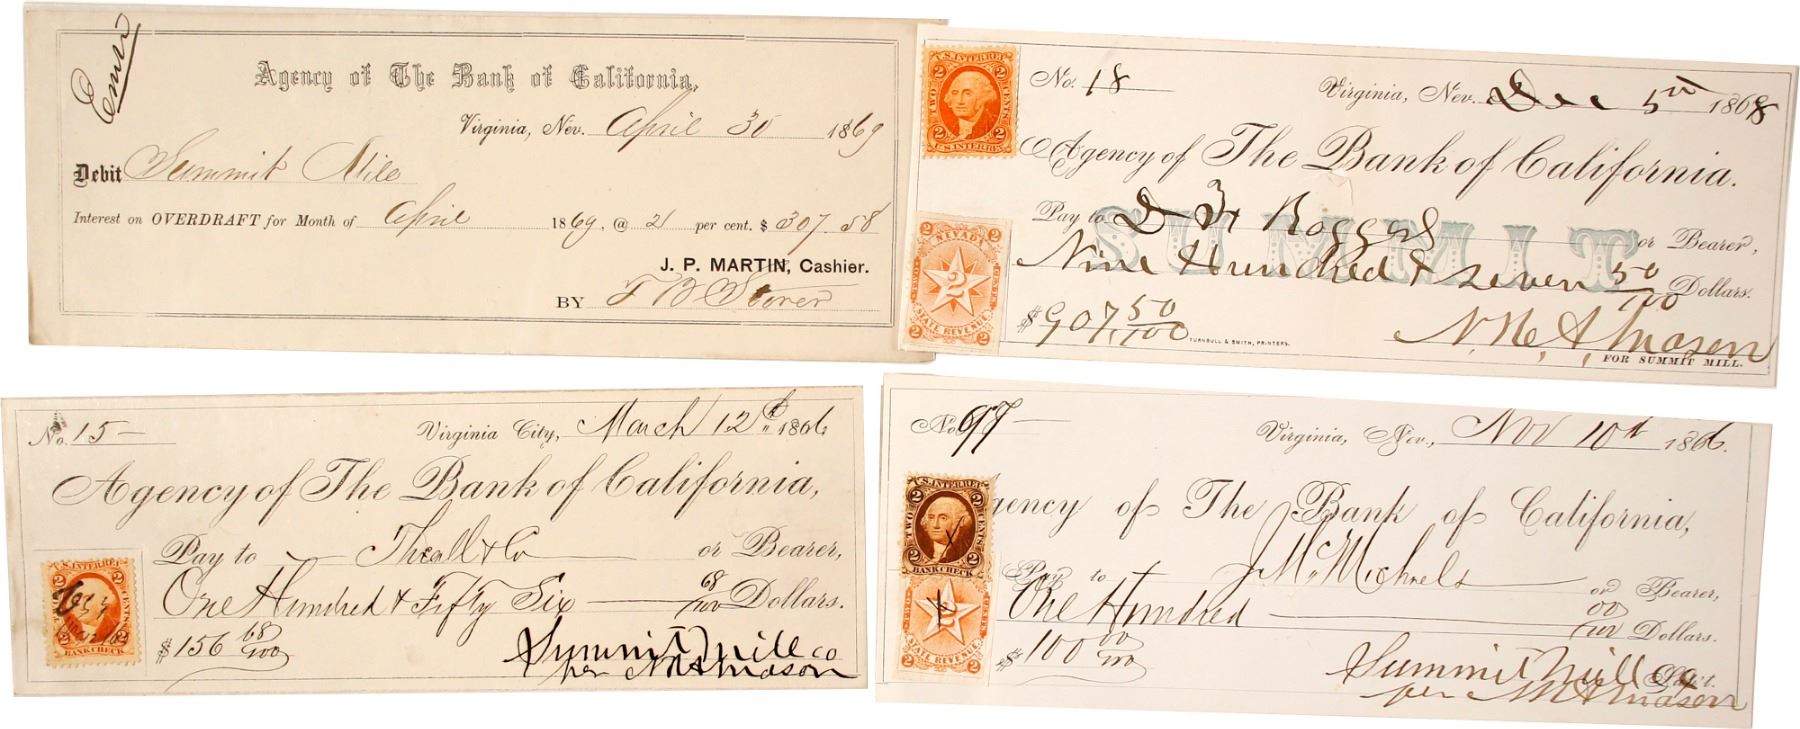 Agency of The Bank of California,
Virginia, Nev. April 30 1869
Debit Summit Mill
Interest on OVERDRAFT for Month of April 1869, @ 2 per cent. $ 307.58
J. P. MARTIN, Cashier.
BY F B Storer
No. 18 Virginia, Nev. Dec 5th 1868
Agency of The Bank of California.
Pay to D H Boggs or Bearer,
SUMMIT
Nine Hundred & Seven 50/100 Dollars.
$ 907, 50/100
TURNBULL & SMITH, PRINTERS.
N. H. A. Mason
FOR SUMMIT MILL.
U.S. INTER REV
2 2
TWO CENTS
2 2
U.S. INTER REV
2 2
NEVADA
2
STATE REVENUE
2 2
No. 15 Virginia City, March 12th 1866
Agency of The Bank of California,
Pay to Theall & Co or Bearer,
One Hundred & Fifty Six 68/100 Dollars.
$ 156 68/100
Summit Mill Co
per N H A Mason
U.S. INTER REV
2 2
CENTS
BANK CHECK
No. 97 Virginia, Nev., Nov 10th 1866.
gency of The Bank of California,
Pay to J McMichaels or Bearer,
One Hundred 00/100 Dollars.
$ 100 00/100
Summit Mill Co
per N H A Mason
U.S. INTER REV
2 2
TWO CENTS
2 2
BANK CHECK
STATE REVENUE
2 2